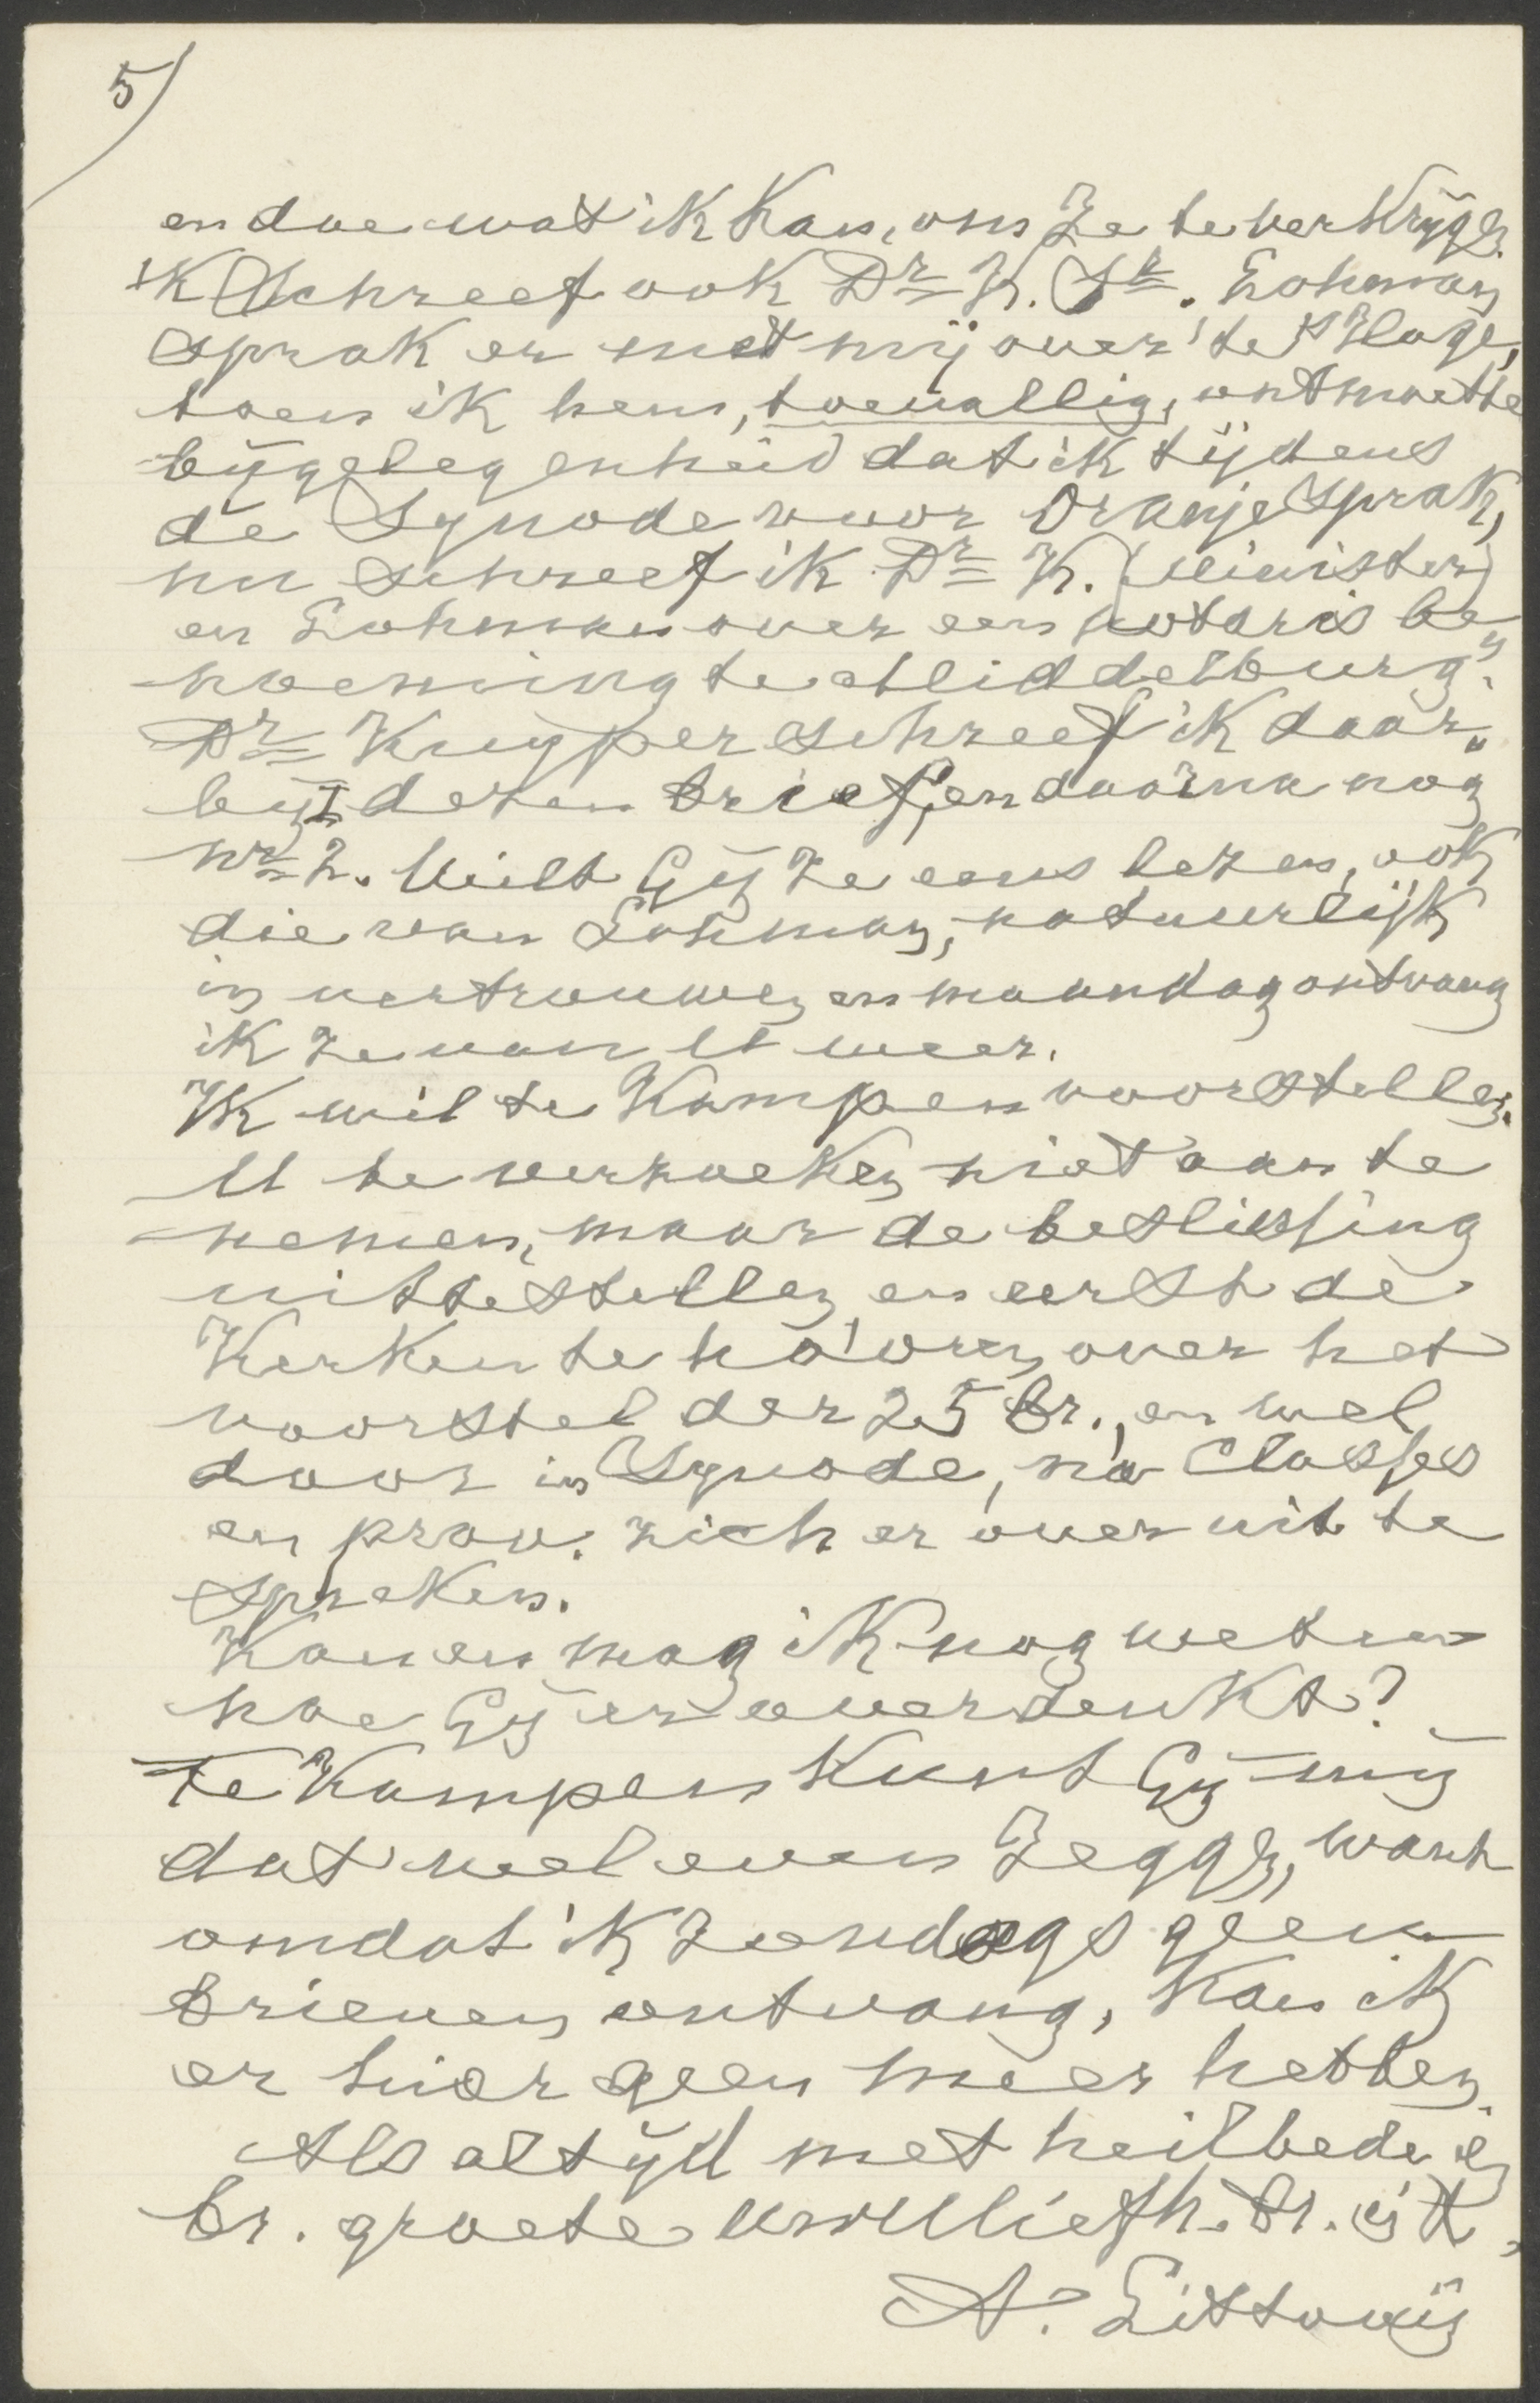 5/
en doe wat ik kan, om ze te verkrijgen.
Ik schreef ook Dr K. Jr. Lohman
sprak er met mij over 'te 's Hage,
toen ik hem, toevallig, ontmoette
bijgelegenheid dat ik tijdens
de Synode voor Oranje sprak,
nu schreef ik Dr K. (Minister)
en Lohman over een notaris be„
noeming te Middelburg".
Dr Kuyper schreef ik daar„
bij dezen brief, en daarna nog
nr 2. Wilt Gij ze eens lezen, ook
die van Lohman, natuurlijk
in vertrouwen en maandag ontvang
ik ze van U weer.
Ik wil te Kampen voorstellen.
U te verzoeken niet aan te
nemen, maar de beslissing
uit te stellen en eerst de
Kerken te hooren over het
voorstel der 25 br., en wel
door in Synode, na Classes
en prov. zich er over uit te
spreken.
Kan en mag ik nog weten
hoe Gij er over denkt?
Te Kampen kunt Gij mij
dat wel even zeggen, want
omdat ik zondags geen
brieven ontvang, kan ik
er hier geen meer hebben.
Als altijd met heilbede en
br. groete uw liefh. br. in X,
A. Littooij